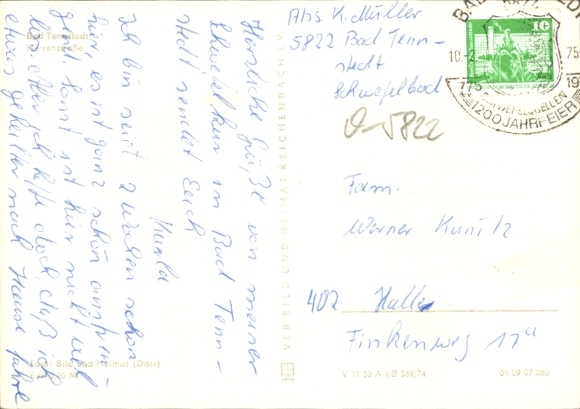 Bad Tennstedt
Herrenstraße
Herzliche Grüße von meiner
Schwefelkur in Bad Tenn-
stedt sendet Euch
Karla
Ich bin seit 2 Wochen schon
hier, es ist ganz schön anstren-
gend sonst ist hier nicht viel
los. Aber ich hoffe doch, daß ich
etwas geheilter nach Hause fahre
Foto: Bild und Heimat (Darr)
VEB BILD UND HEIMAT REICHENBACH
Abs K. Müller
5822 Bad Tenn-
stedt
Schwefelbad
5822
10
75
775
1200 JAHRFEIER
Fam.
Werner Kunitz
402 Halle
Finkenweg 17a
V 11 50 A 1/B 569/74
01 09 07 060